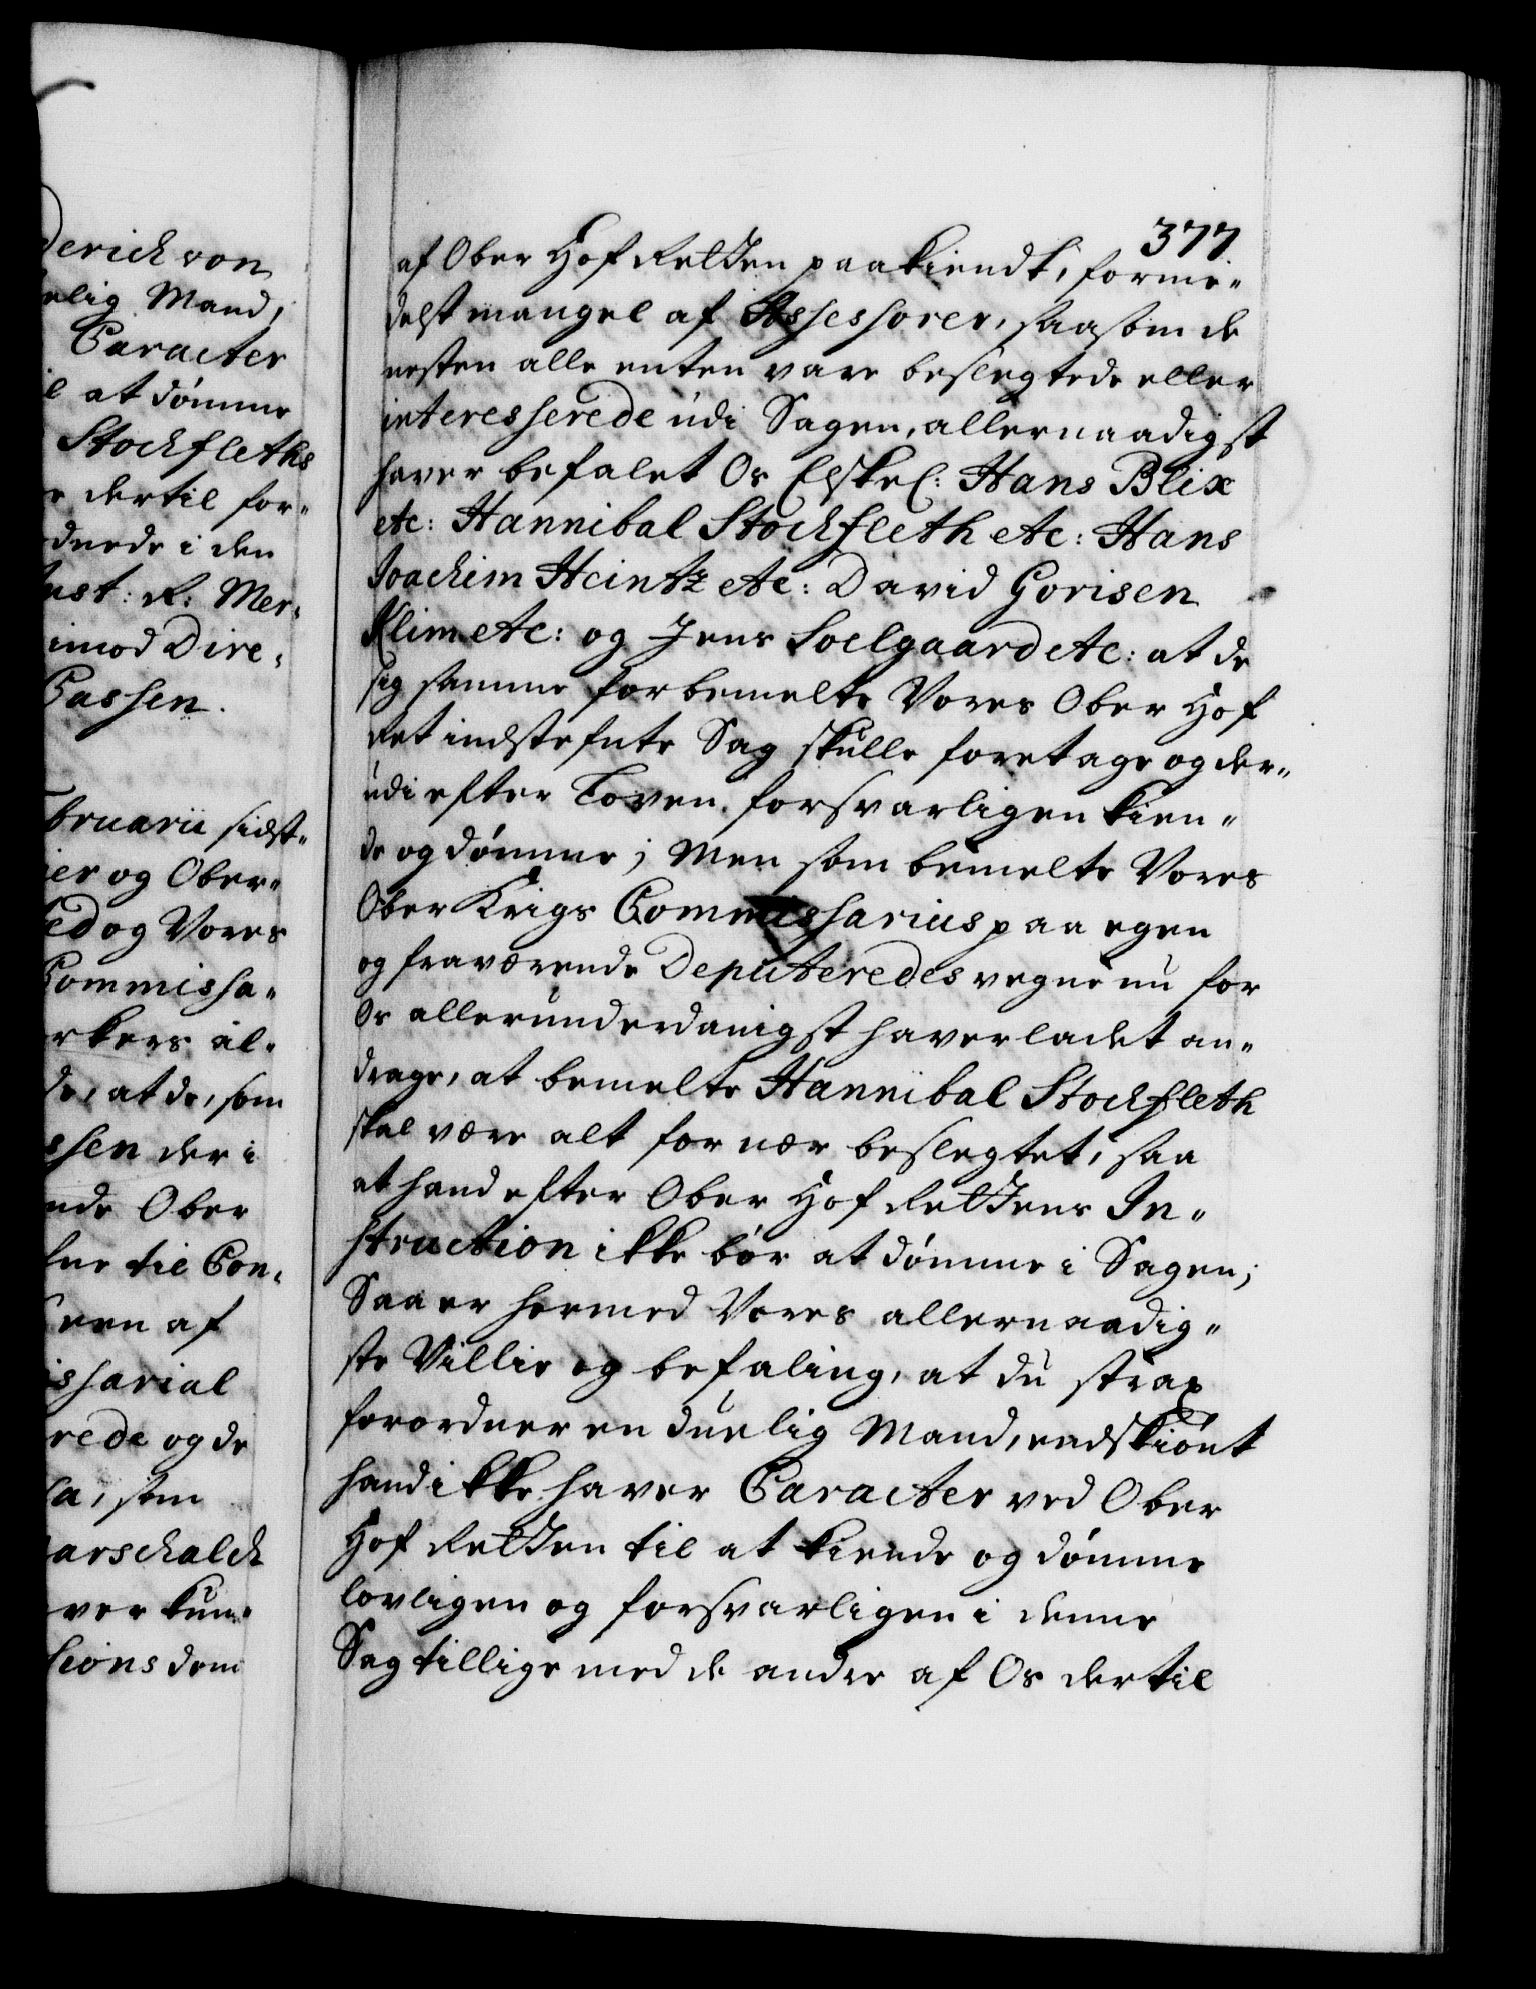 derich von
elig Mand,
Caracter
at dømme
Stockfleths
dertil for-
dnede i den
ust: R: Mer-
imod Dire-
Cassen.
bruarii sidst-
ier og Ober-
ed og Vores
Commissa-
rkers al-
de, at de, som
ssen der i
nde Ober
til Con-
een af
issarial
rede og de
som
arschalck
ver kun-
sions dom
377
af Ober Hof Retten paakiendt, forme-
delst mangel af Assessorer, saasom de
nesten alle enten vare beslegtede eller
interesserede udi Sagen, allernaadigst
haver befalet Os Elskel: Hans Blix
etc: Hannibal Stockfleth etc: Hans
Joachim Heintz etc: David Gorisen
Klim etc: og Jens Soelgaard etc: at de
sig samme for bemelte Vores Ober Hof
Ret indstefnte Sag skulle foretage og der-
udi efter Loven forsvarligen kien-
de og dømme; Men som bemelte Vores
Ober Krigs Commissarius paa egen
og fraværende Deputeredes vegne nu for
Os allerunderdanigst haver ladet an-
drage, at bemelte Hannibal Stockfleth
skal være alt for nær beslegtet, saa
at hand efter Ober Hof Rettens In-
struction ikke bør at dømme i Sagen;
Saa er hermed Vores allernaadig-
ste Villie og befaling, at du strax
forordner en duelig Mand, endskiønt
hand ikke haver Caracter ved Ober
Hof Retten til at kiende og dømme
lovligen og forsvarligen i denne
Sag tillige med de andre af Os dertil